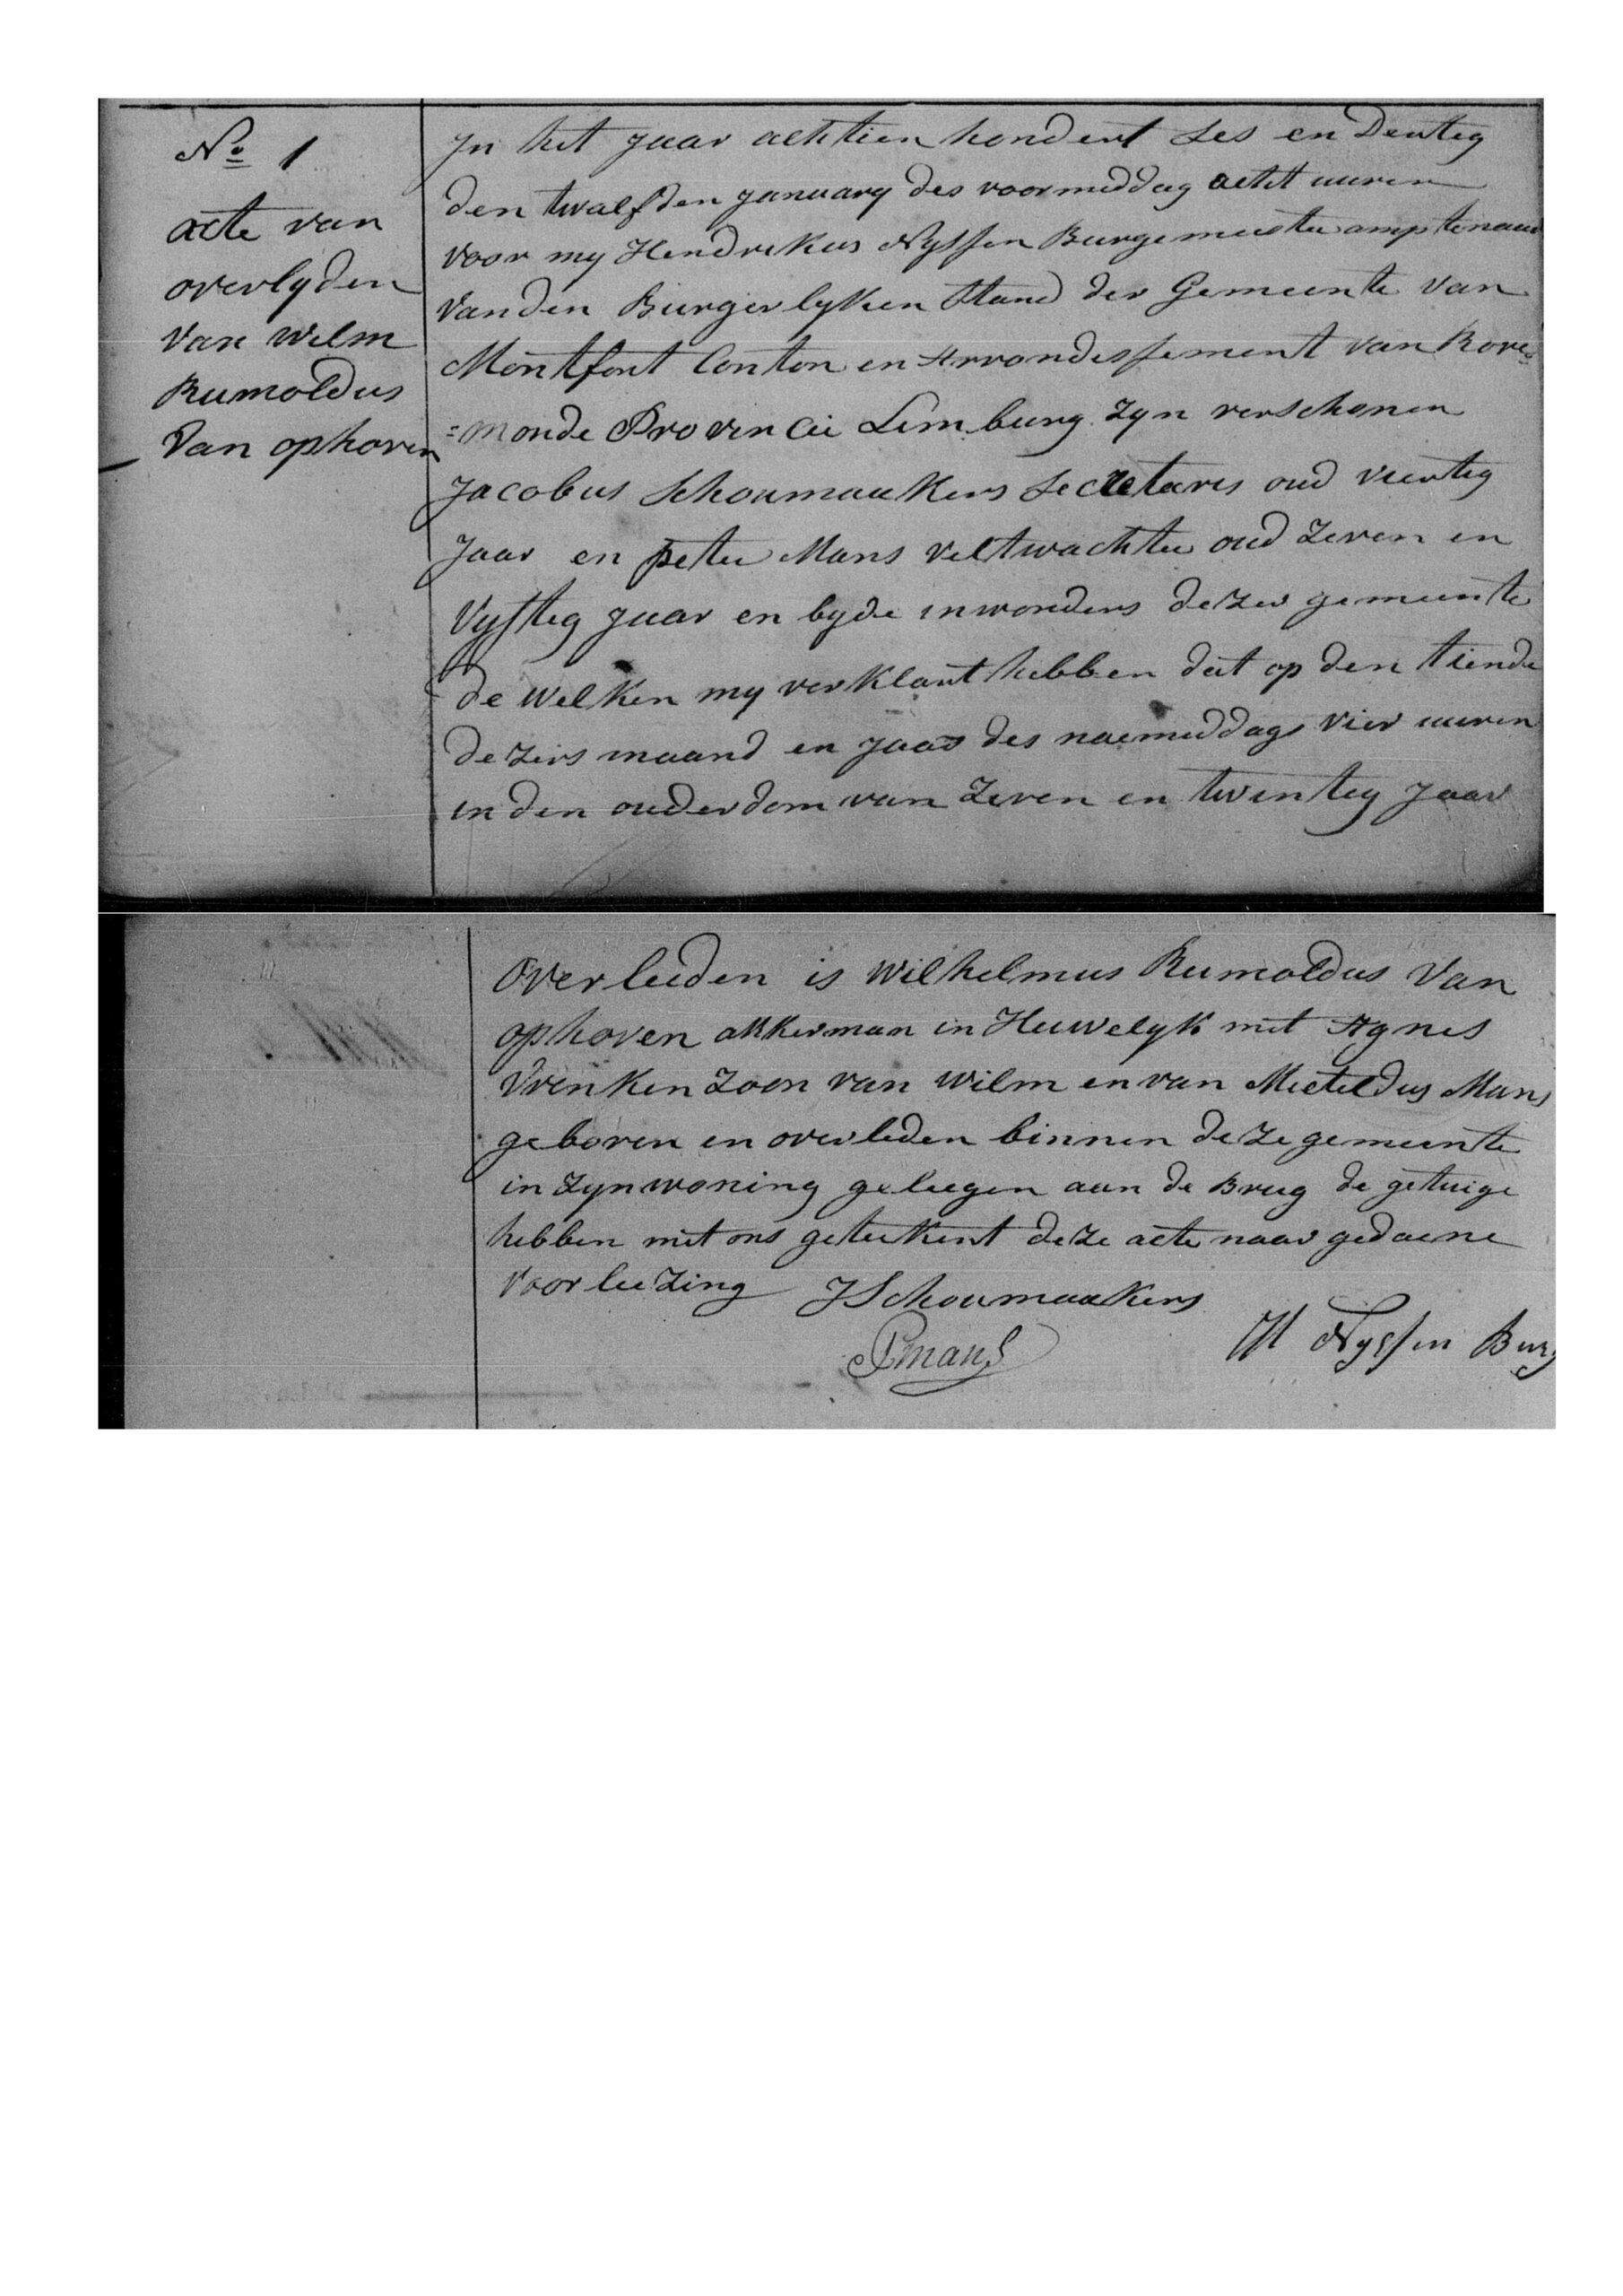 No 1
acte van
overlyden
van wilm
Rumoldus
van ophoven
In het jaar achtien hondert ses en dertig
den twalfden january des voormiddag acht uuren
voor my Hendrikus Nyssen Burgemeester amptenaar
van den Burgerlyken Stand der Gemeente van
Montfort Canton en Arrondissement van Rore=
=monde Provincie Limburg zyn verschenen
Jacobus Schoumaakers Secretaris oud veertig
Jaar en peter Mans veltwachter oud zeven en
vyftig jaar en byde inwonders dezer gemeente
de welken my verklart hebben dat op den tiende
dezers maand en jaar des naemiddags vier uuren
in den ouderdom van zeven en twintig jaar
overleeden is Wilhelmus Rumoldus van
ophoven akkerman in Heuwelyk met Agnes
Vrenken zoon van Wilm en van Mectildus Mans
geboren en overleden binnen deze gemeente
in zyn woning geleegen aan de Brug de getuige
hebben met ons geteekent deze acte naar gedaene
voorleezing JSchoumaakers
PMans
H Nyssen Burg